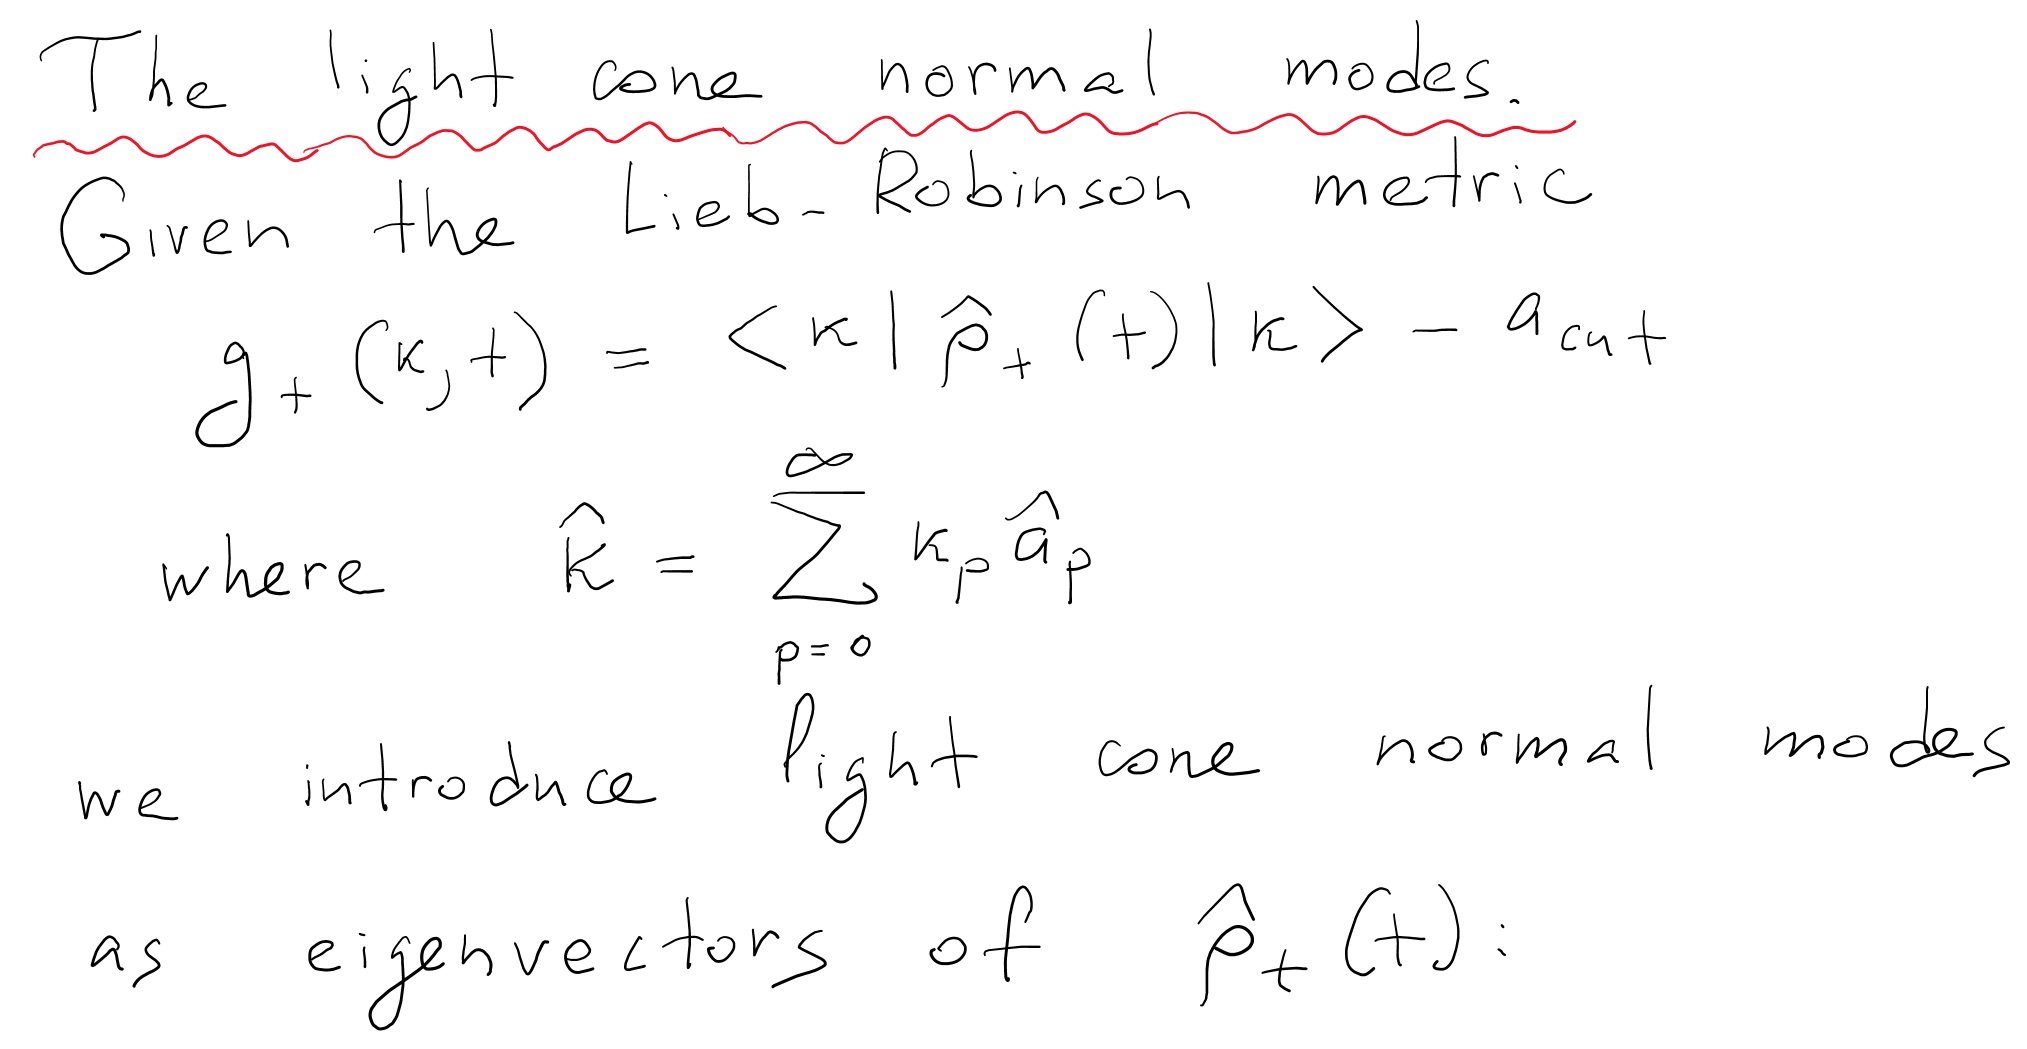 The light cone normal modes.
Given the Lieb-Robinson metric
g₊(κ,t) = <κ| ρ̂₊(t) |κ> - a_cut
where κ̂ = ∑_{p=0}^{∞} κ_p â_p
we introduce light cone normal modes
as eigenvectors of ρ̂₊(t):